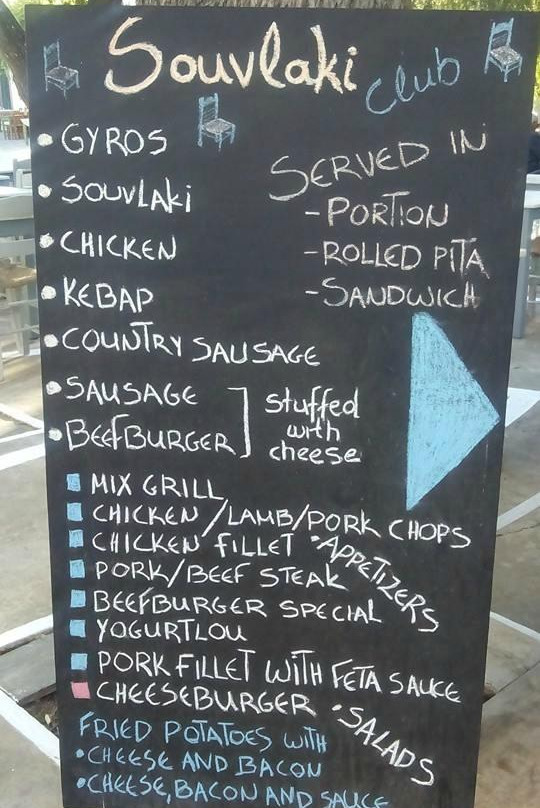 Souvlaki Club
• GYROS
• SOUVLAKi
• CHICKEN
• KEBAP
SERVED IN
-PORTION
-ROLLED PITA
-SANDWICH
• COUNTRY SAUSAGE
• SAUSAGE
• BEEFBURGER
stuffed
with
cheese
MIX GRILL
CHICKEN/LAMB/PORK CHOPS
CHICKEN fiLLET
• APPETIZERS
PORK/BEEF STEAK
BEEFBURGER SPECIAL
YOGURTLOU
PORK FILLET WITH FETA SAUCE
CHEESEBURGER
• SALADS
FRIED POTATOES WITH
• CHEESE AND BACON
• CHEESE, BACON AND SAUCE